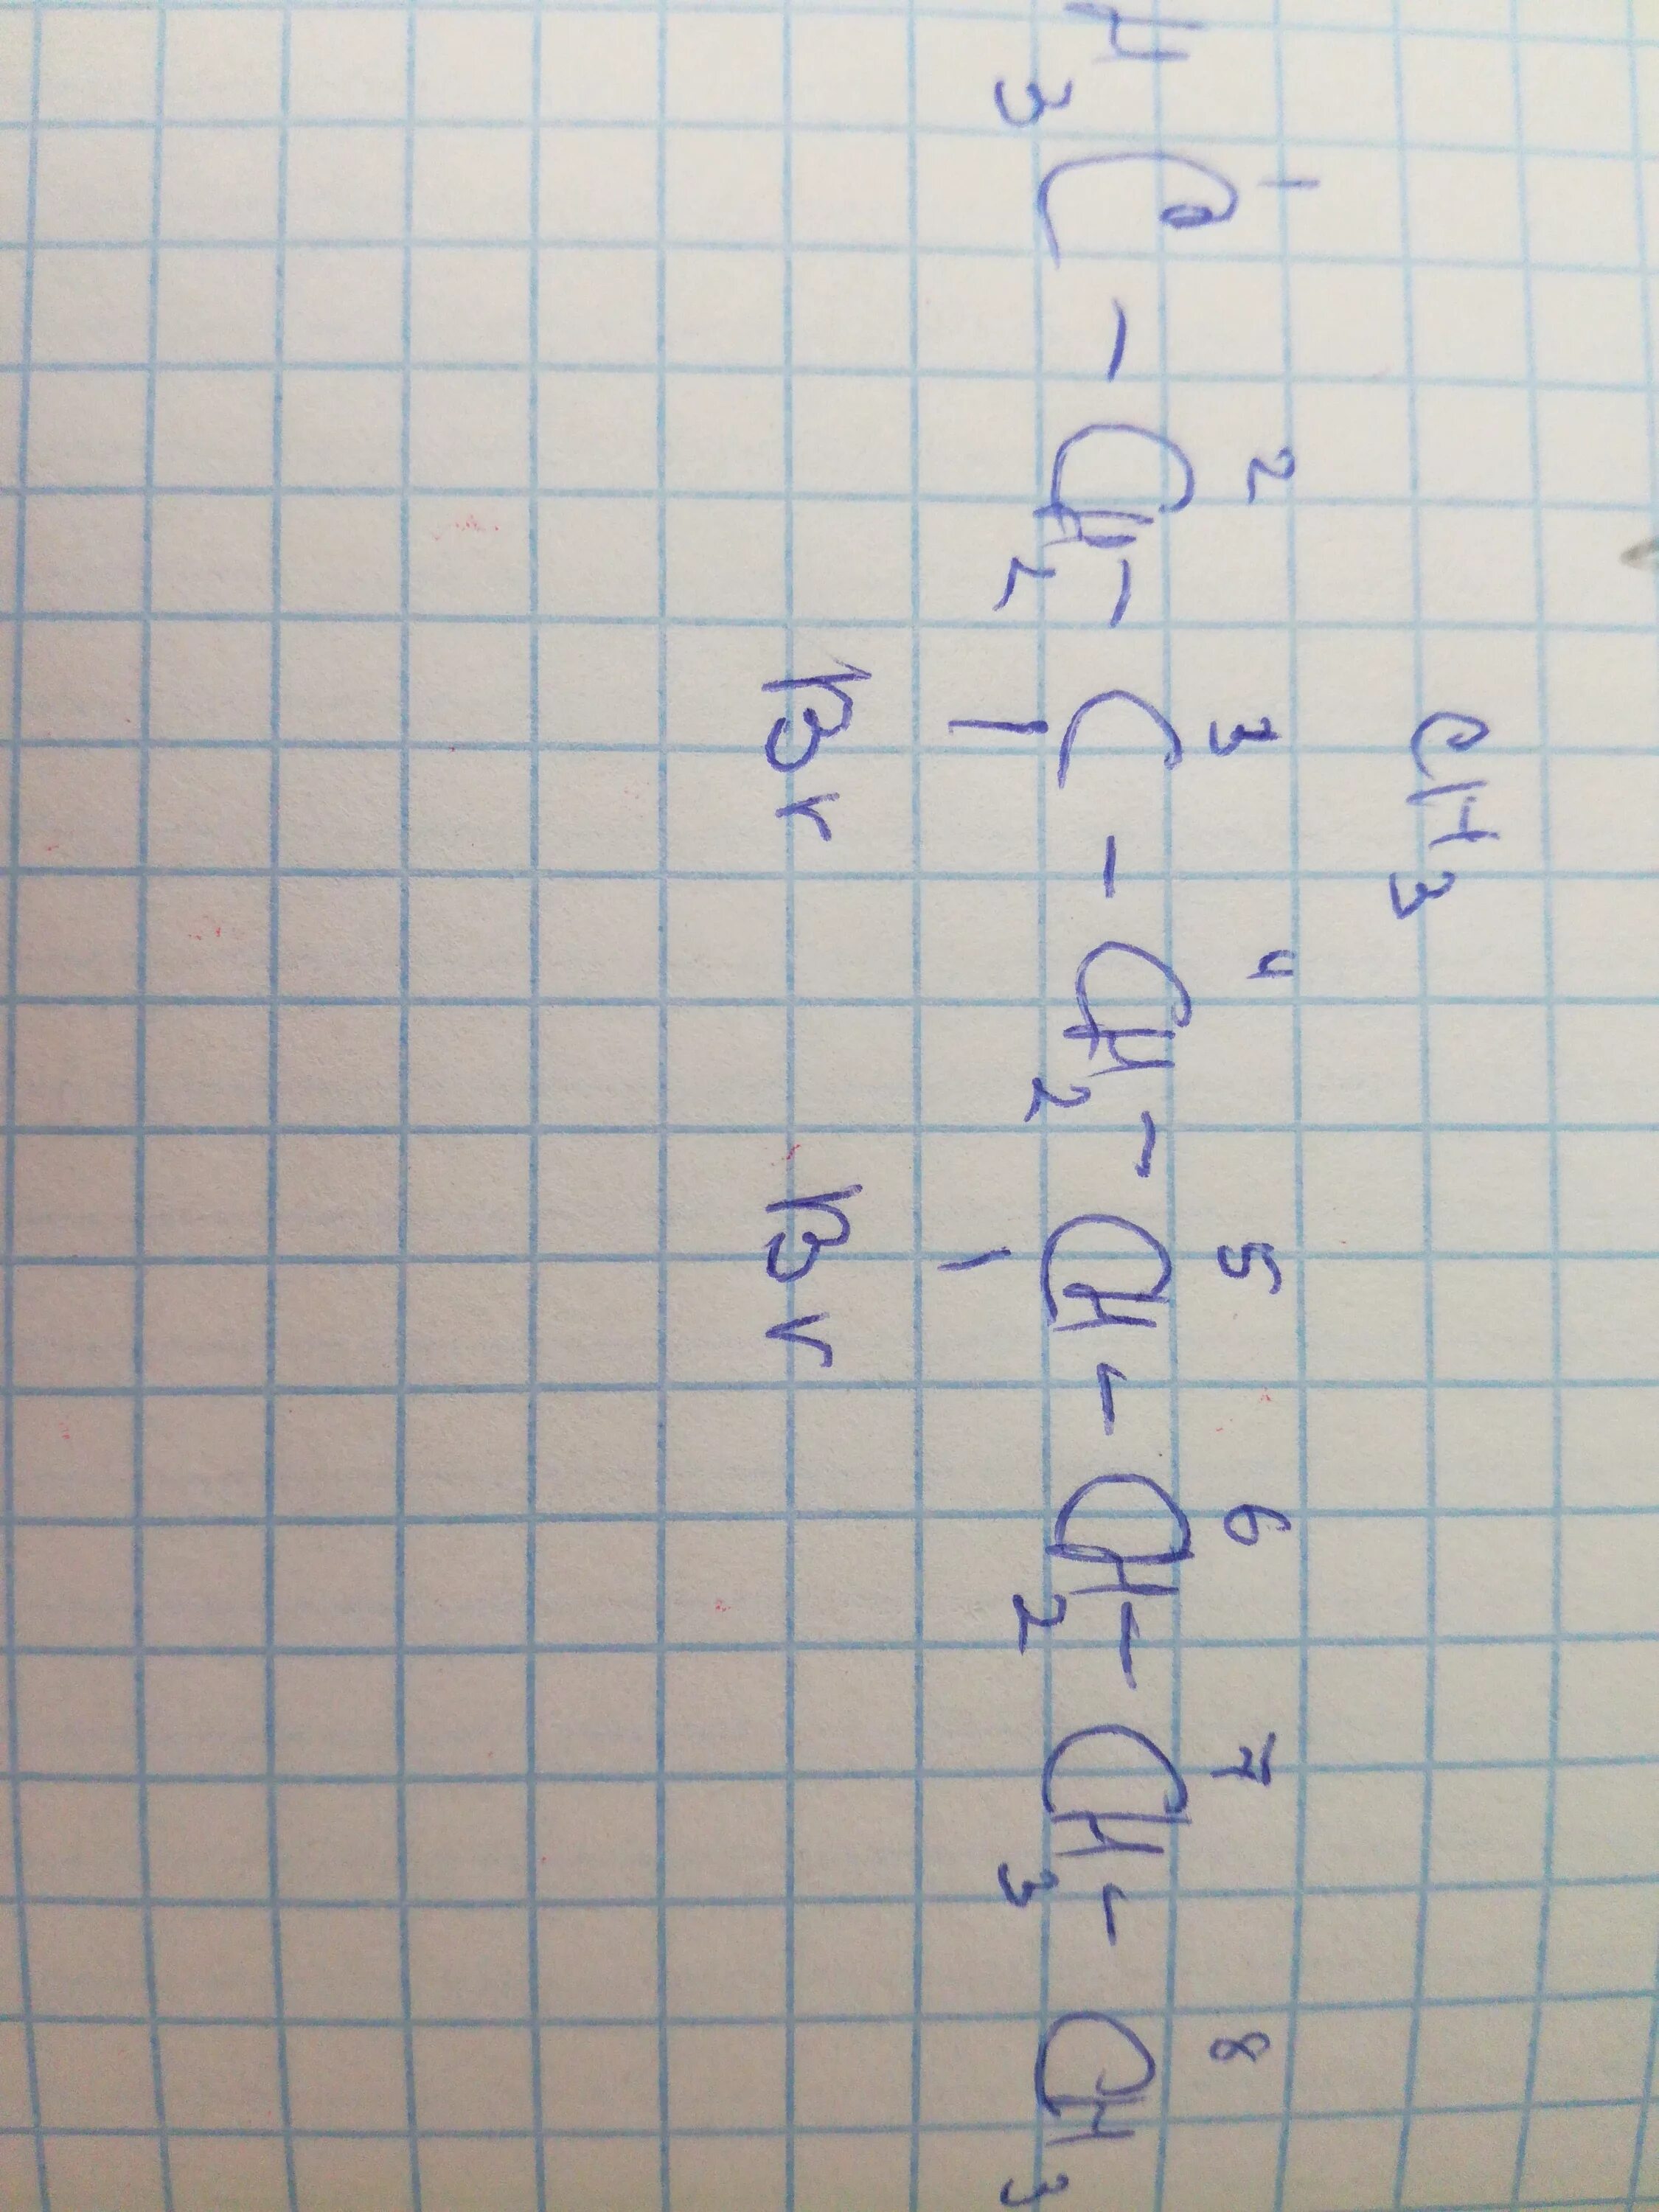 CH3
1 2 3 4 5 6 7 8
H3C - CH2 - C - CH2 - CH - CH2 - CH3 - CH3
| |
Br Br